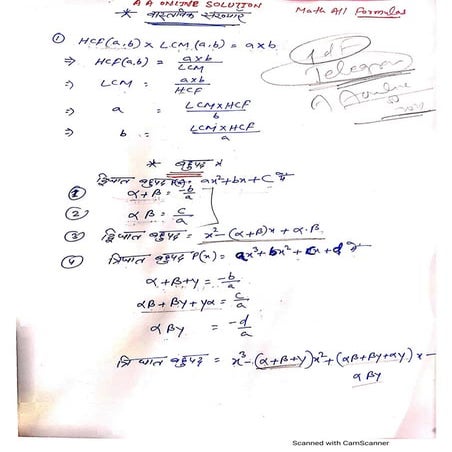 A A ONLINE SOLUTION
* वास्तविक संख्याएं
Math All Formulas
① HCF(a,b) × LCM(a,b) = a×b
⇒ HCF(a,b) = a×b/LCM
⇒ LCM = a×b/HCF
⇒ a = LCM×HCF/b
⇒ b = LCM×HCF/a
Pdf
Telegram
* बहुपद *
द्विघात बहुपद P(x) = ax²+bx+c
① α+β = -b/a
② αβ = c/a
③ द्विघात बहुपद = x²-(α+β)x + α.β
④ त्रिघात बहुपद P(x) = ax³+bx²+cx+d
α+β+γ = -b/a
αβ+βγ+γα = c/a
αβγ = -d/a
त्रिघात बहुपद = x³-(α+β+γ)x²+(αβ+βγ+αγ)x-
αβγ
Scanned with CamScanner